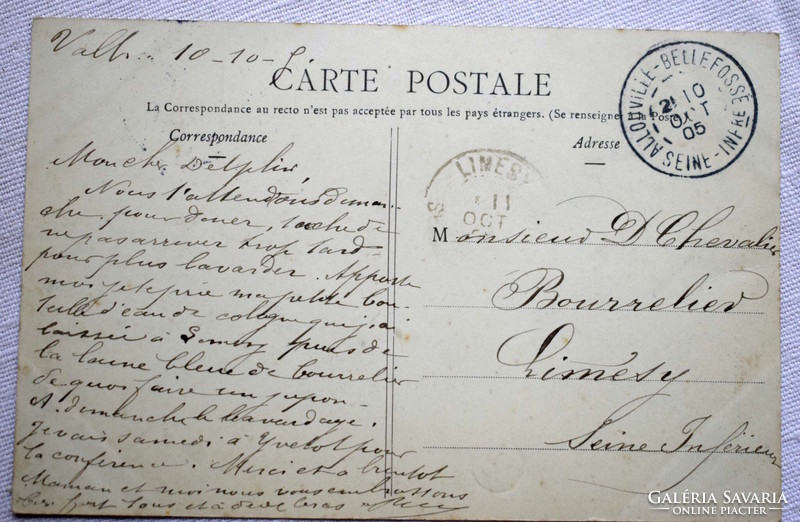 10-10-5
CARTE POSTALE
La Correspondance au recto n'est pas acceptée par tous les pays étrangers. (Se renseigner à la Poste)
Correspondance
Adresse
ALLOUVILLE-BELLEFOSSE
10
OCT
05
SEINE-INFRE
LIMESY
11
OCT
Mon cher Delphin,
Nous t'attendons diman-
che pour diner, tache de
ne pas arriver trop tard
pour plus bavarder. Apporte
moi je te prie ma petite bou-
teille d'eau de cologne que j'ai
laissée à puis de
la laine bleue de bourrelier
de quoi faire un jupon.
A dimanche le bavardage.
je vais samedi à Yvetot pour
la conférence. Merci et a bientot
Maman et moi nous vous embrassons
bien fort tous et à deux bras
Monsieur D Chevalier
Bourrelier
Limésy
Seine Inférieure
GALÉRIA SAVARIA
ONLINE PIACTÉR